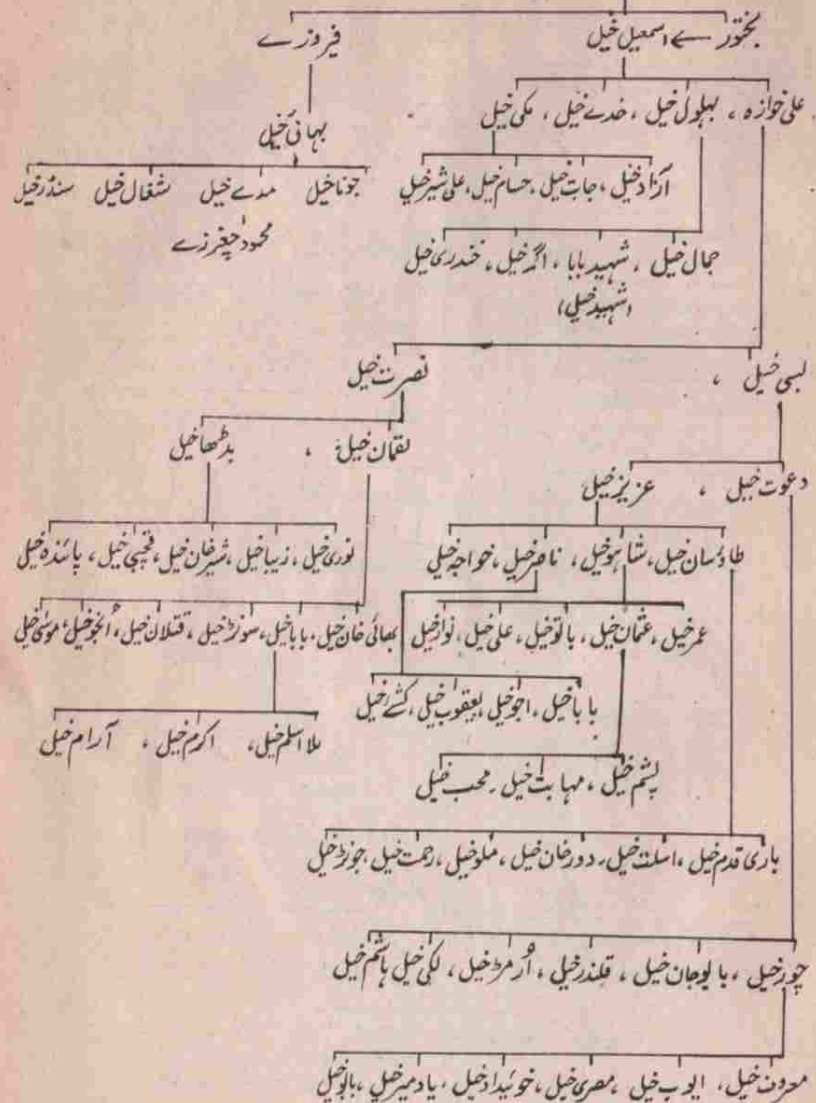 بختور ← اسمعیل خیل فیروزے
علی خوازہ ، بہلول خیل ، خدے خیل ، مکی خیل
بہائی خیل
آزاد خیل ، جابت خیل ، حسام خیل ، علی شیر خیل
جونا خیل مدے خیل شغال خیل سنڈر خیل
محمود چغرزے
جمال خیل ، شہید بابا ، اگر خیل ، خندری خیل
(شہید خیل)
لسی خیل ، نصرت خیل
لقمان خیل ، بڈھا خیل
دعوت خیل ، عزیز خیل
نوری خیل ، زیبا خیل ، شیر خان خیل ، فتحبی خیل ، پائندہ خیل
طاؤسان خیل ، شاہو خیل ، ناصر خیل ، خواجہ خیل
بھائی خان خیل ، بابا خیل ، سونڑ خیل ، قتلان خیل ، اُنجو خیل ، موسیٰ خیل
عمر خیل ، عثمان خیل ، بالو خیل ، علی خیل ، نواز خیل
بابا خیل ، اجو خیل ، یعقوب خیل ، کٹے خیل
ملا اسلم خیل ، اکرم خیل ، آرام خیل
پشم خیل ، مہابت خیل ، محب خیل
باری قدم خیل ، اسلت خیل ، دور خان خیل ، ملو خیل ، رحمت خیل ، جونڑ خیل
چور خیل ، بالو جان خیل ، قلندر خیل ، اُرمڑ خیل ، لکی خیل ہاشم خیل
معروف خیل ، ایوب خیل ، مصری خیل ، خوئیداد خیل ، یاد میر خیل ، بالو خیل